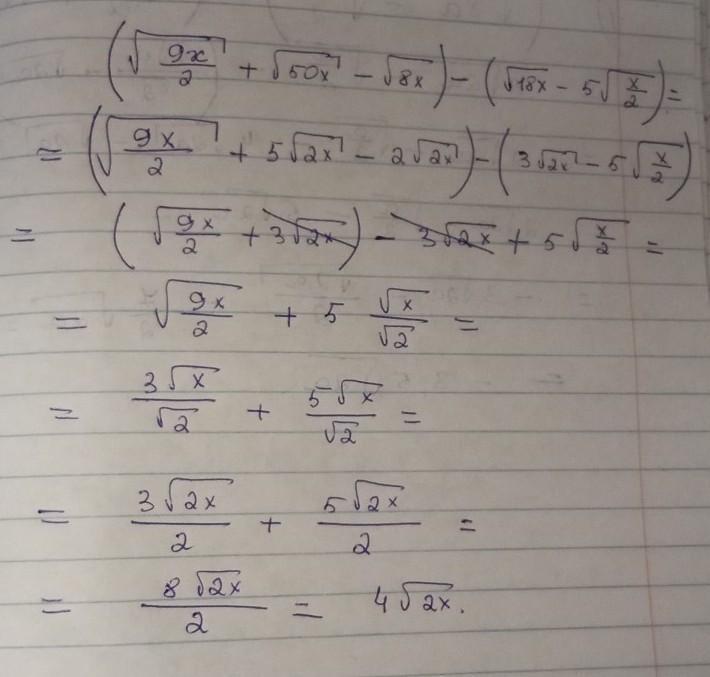 (√(9x/2) + √50x − √8x) − (√18x − 5√(x/2)) =
= (√(9x/2) + 5√2x − 2√2x) − (3√2x − 5√(x/2))
= (√(9x/2) + 3√2x) − 3√2x + 5√(x/2) =
= √(9x/2) + 5 √x/√2 =
= 3√x/√2 + 5√x/√2 =
= 3√2x/2 + 5√2x/2 =
= 8√2x/2 = 4√2x.